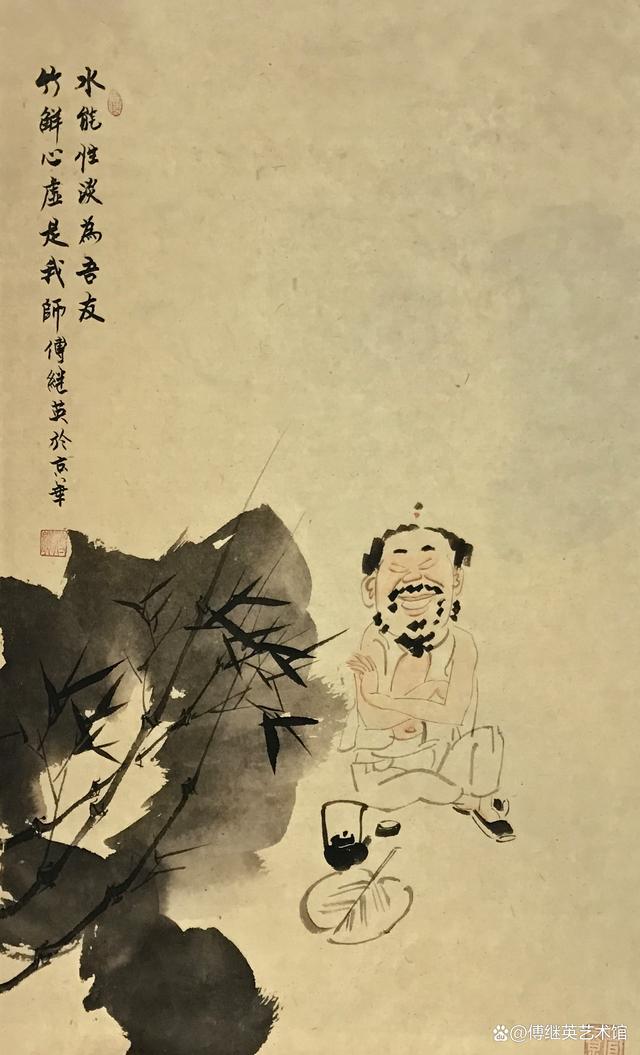 水能性淡為吾友
竹解心虛是我師
傅继英於京華
@傅继英艺术馆